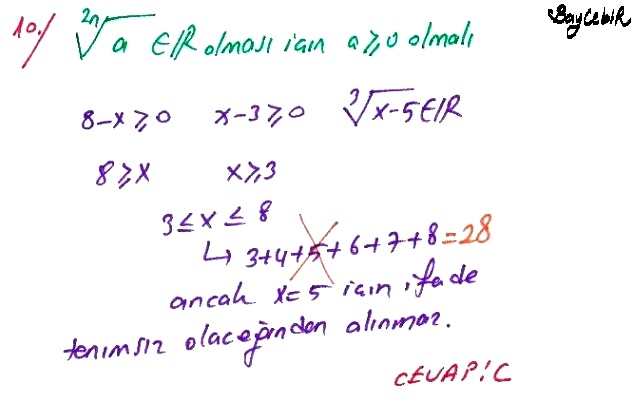 BayCebiR
10./ ²ⁿ√a ∈ IR olması için a ≥ 0 olmalı
8-x ≥ 0   x-3 ≥ 0   ³√x-5 ∈ IR
8 ≥ x   x ≥ 3
3 ≤ x ≤ 8
↳ 3+4+5+6+7+8=28
ancak x=5 için ifade
tanımsız olacağından alınmaz.
CEVAP: C